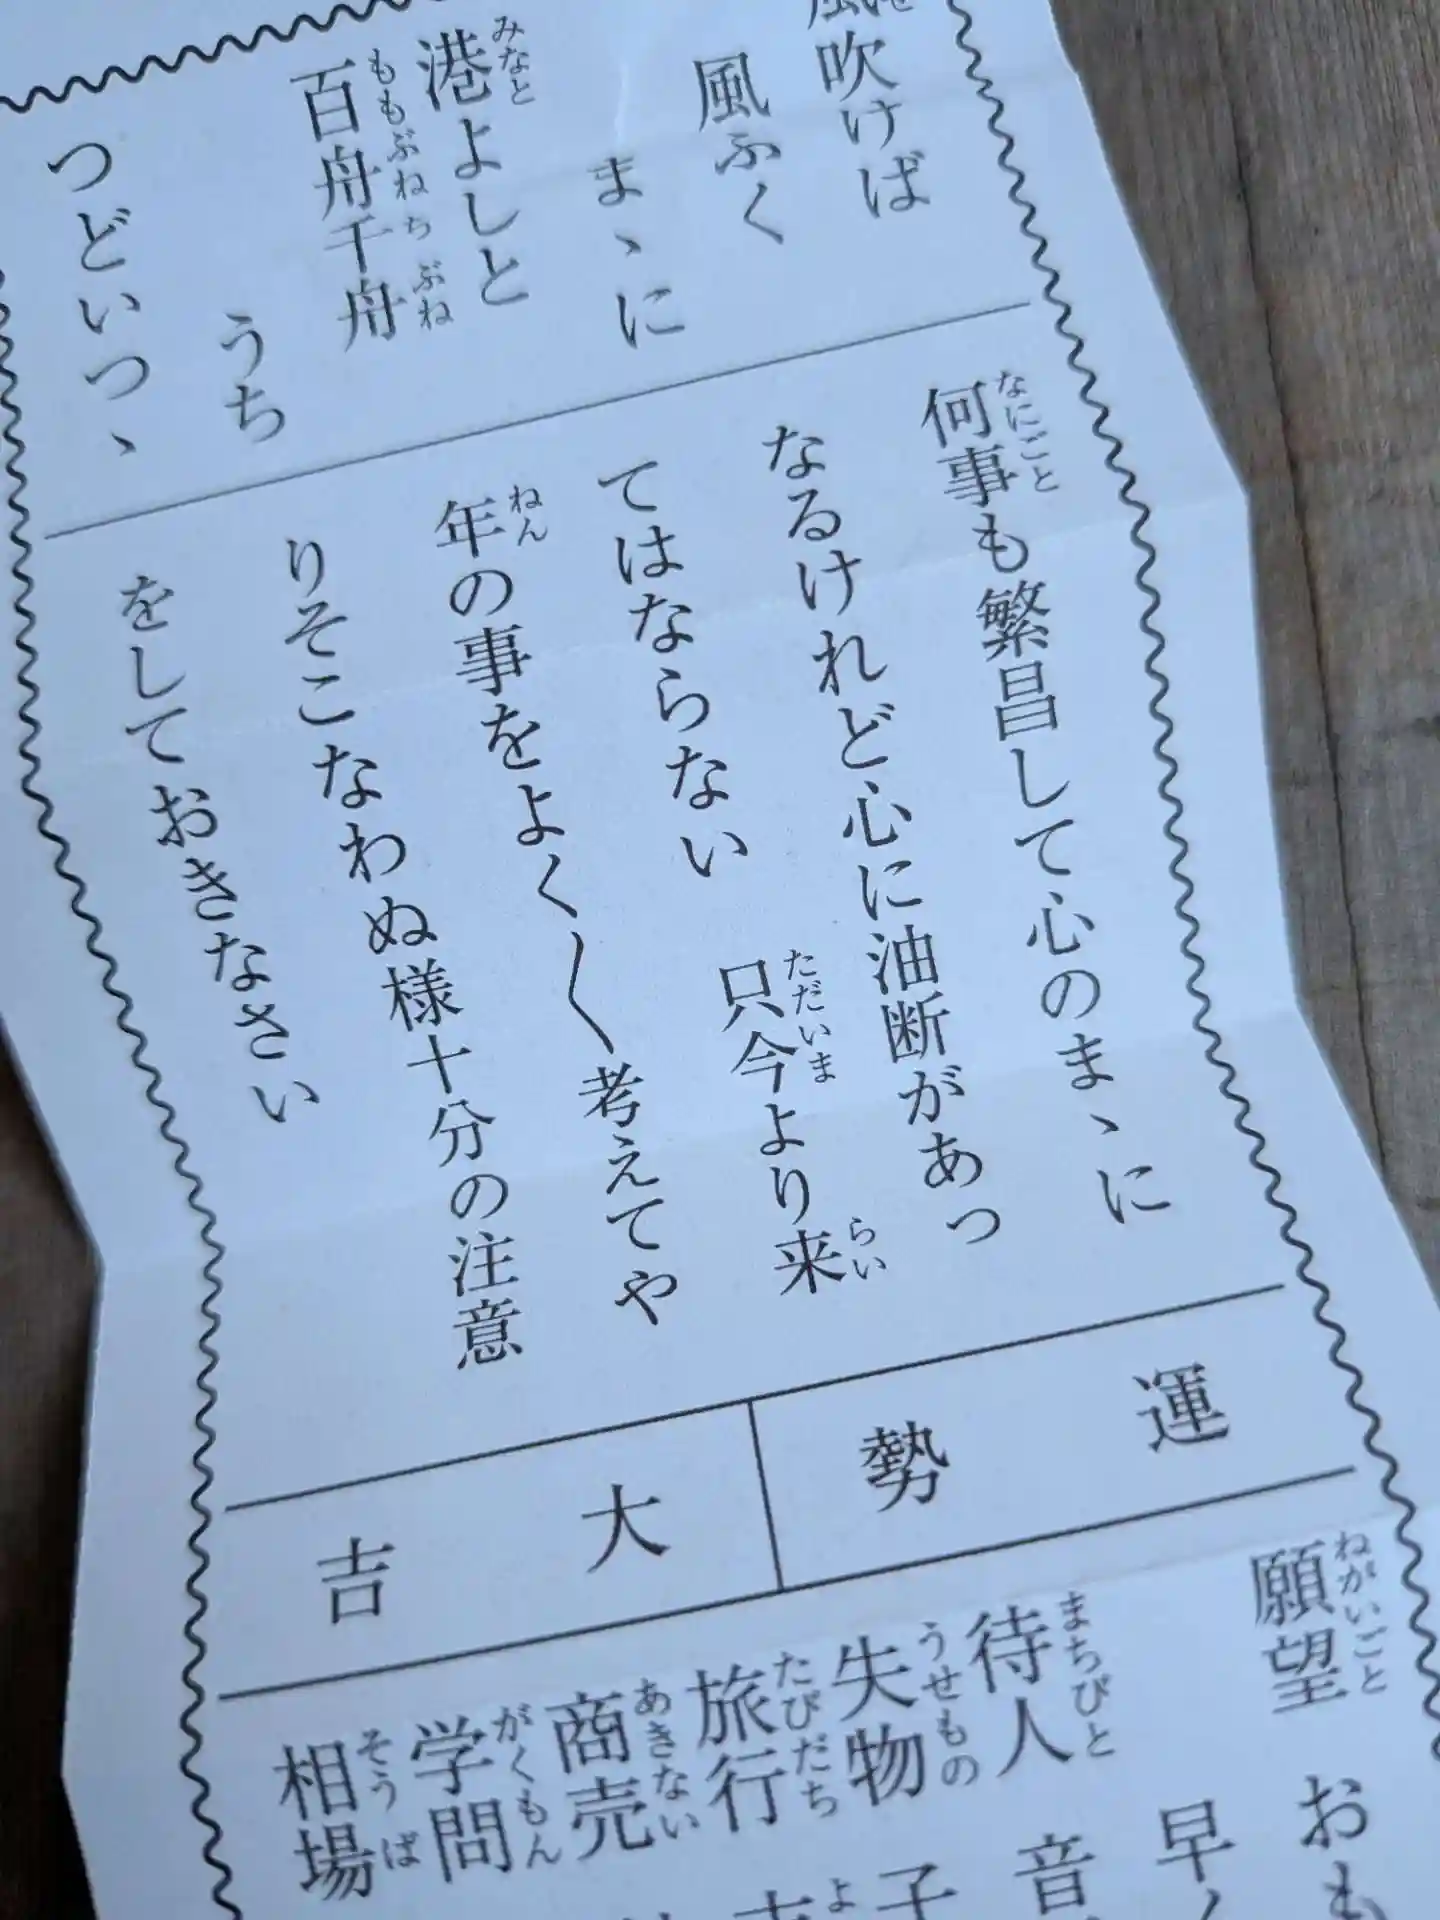 風吹けば
風ふく
まゝに
港よしと
百舟千舟
うち
つどいつゝ
何事も繁昌して心のまゝに
なるけれど心に油断があっ
てはならない 只今より来
年の事をよく〱考えてや
りそこなわぬ様十分の注意
をしておきなさい
運勢
大吉
願望 おも
待人 早く
失物 音
旅行 子
商売
学問
相場